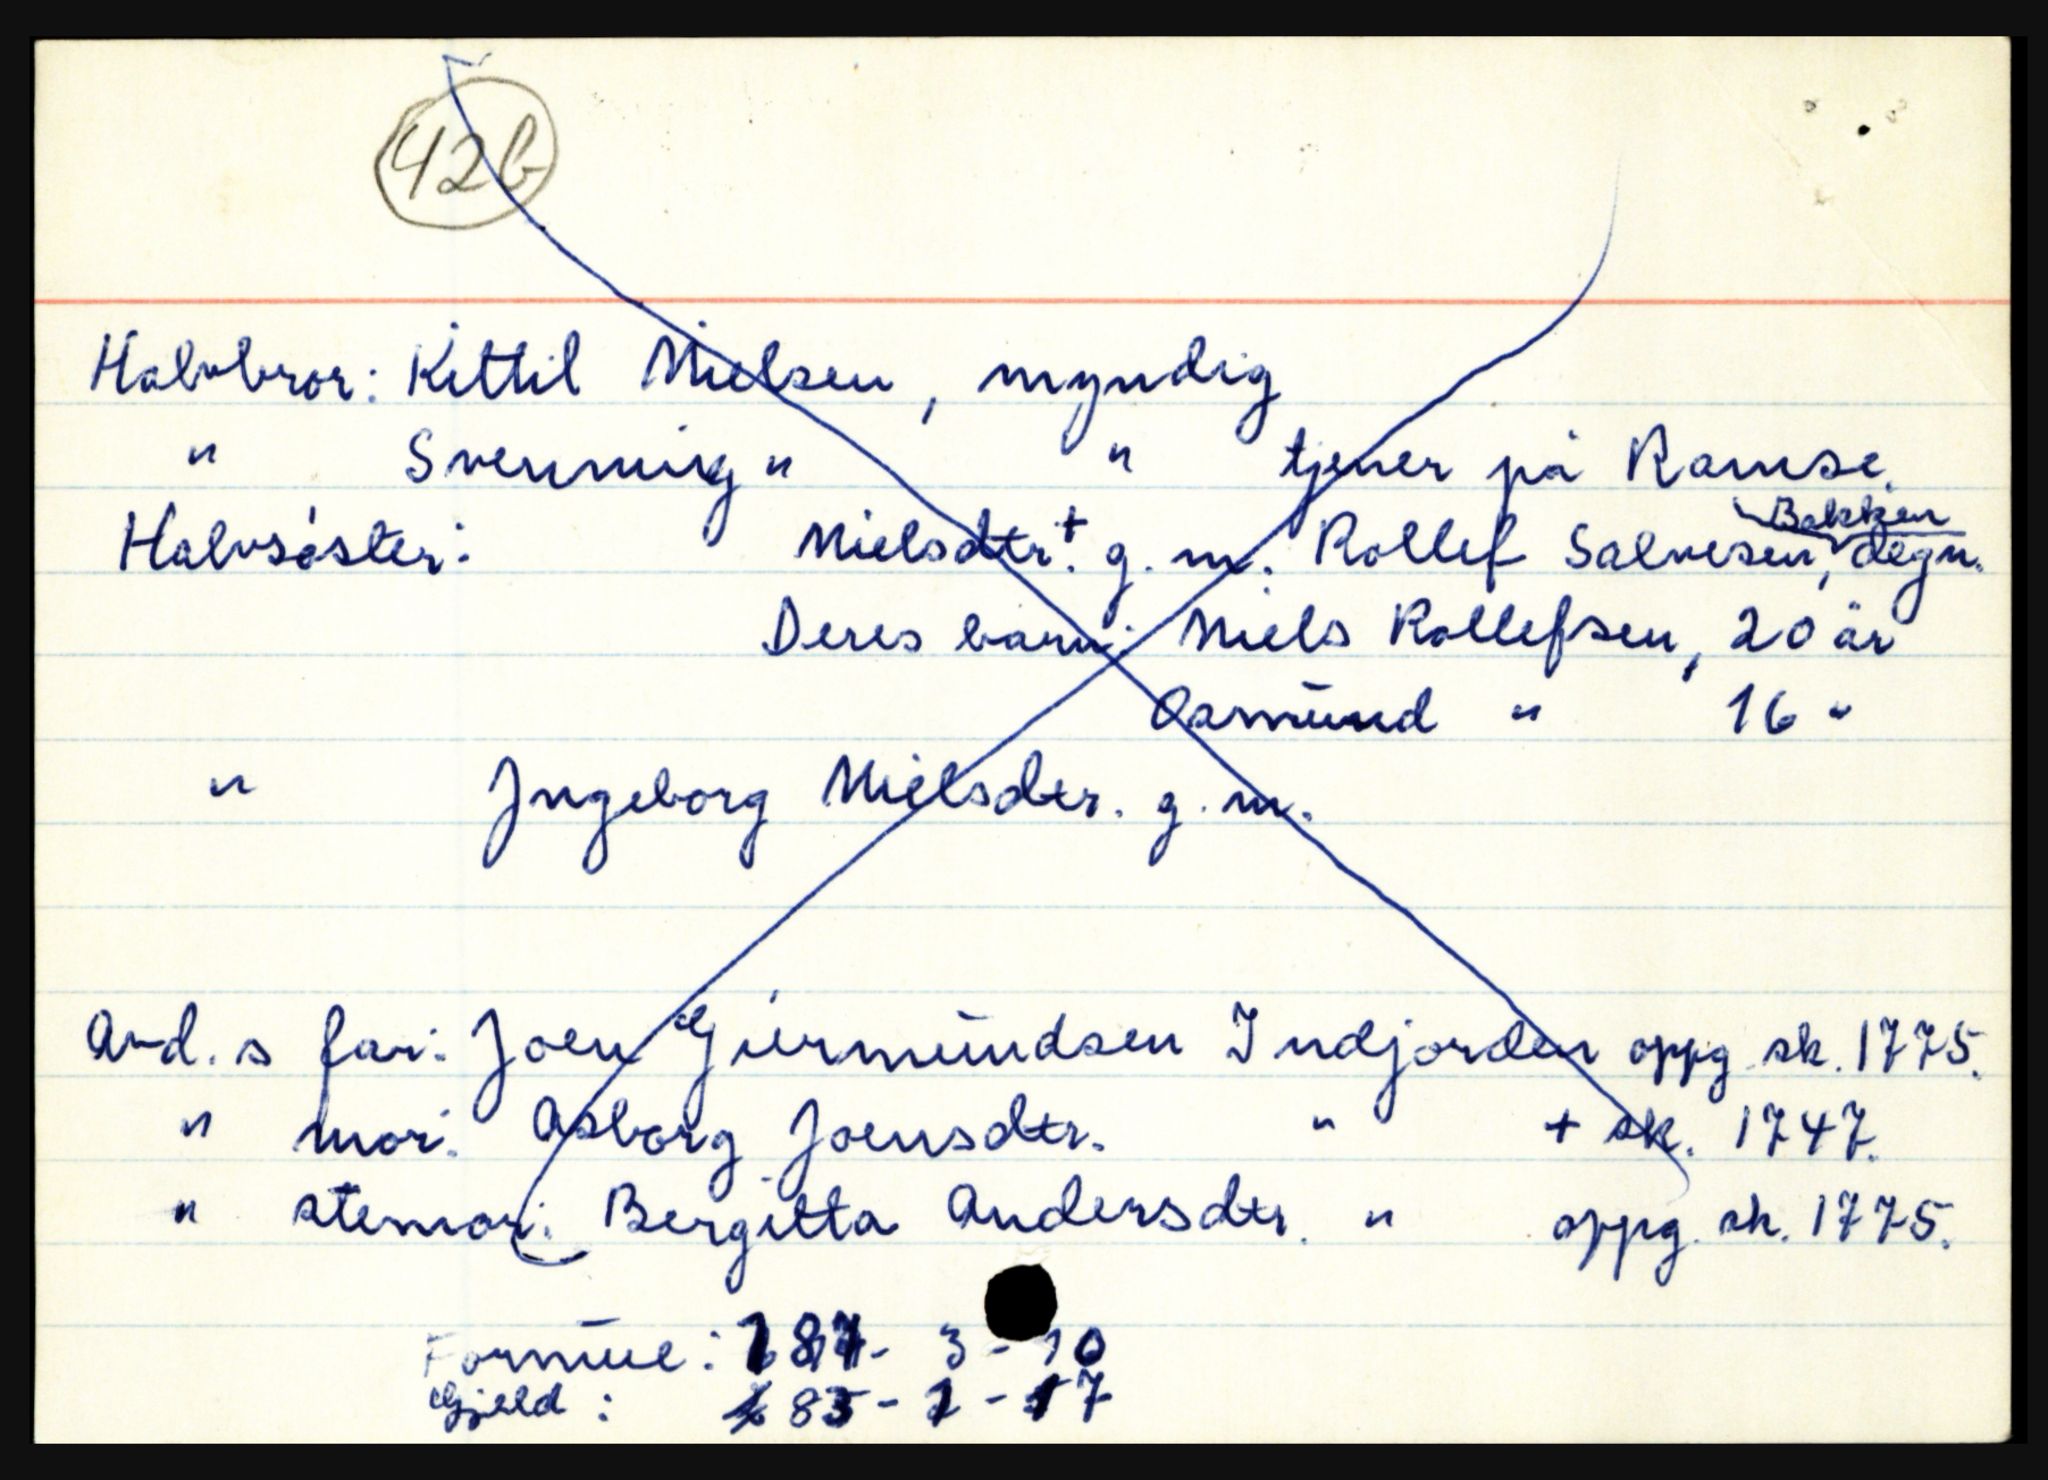 42b
Halvbror: Kittil Nielsen, myndig
" Svenning " " tjener på Ramse.
Bakken
Halvsøster: Nielsdtr.+ g. m. Rollef Salvesen, degn.
Deres barn: Niels Rollefsen, 20 år
Asmund " 16 "
" Ingeborg Nielsdtr. g. m.
Avd. s far: Joen Giermundsen Indjorden oppg. sk. 1775.
" mor: Asborg Joensdtr. " + sk. 1747.
" stemor: Bergitta Andersdtr. " oppg. sk. 1775.
Formue: 187 - 3 - 10
Gjeld: 185 - 1 - 17